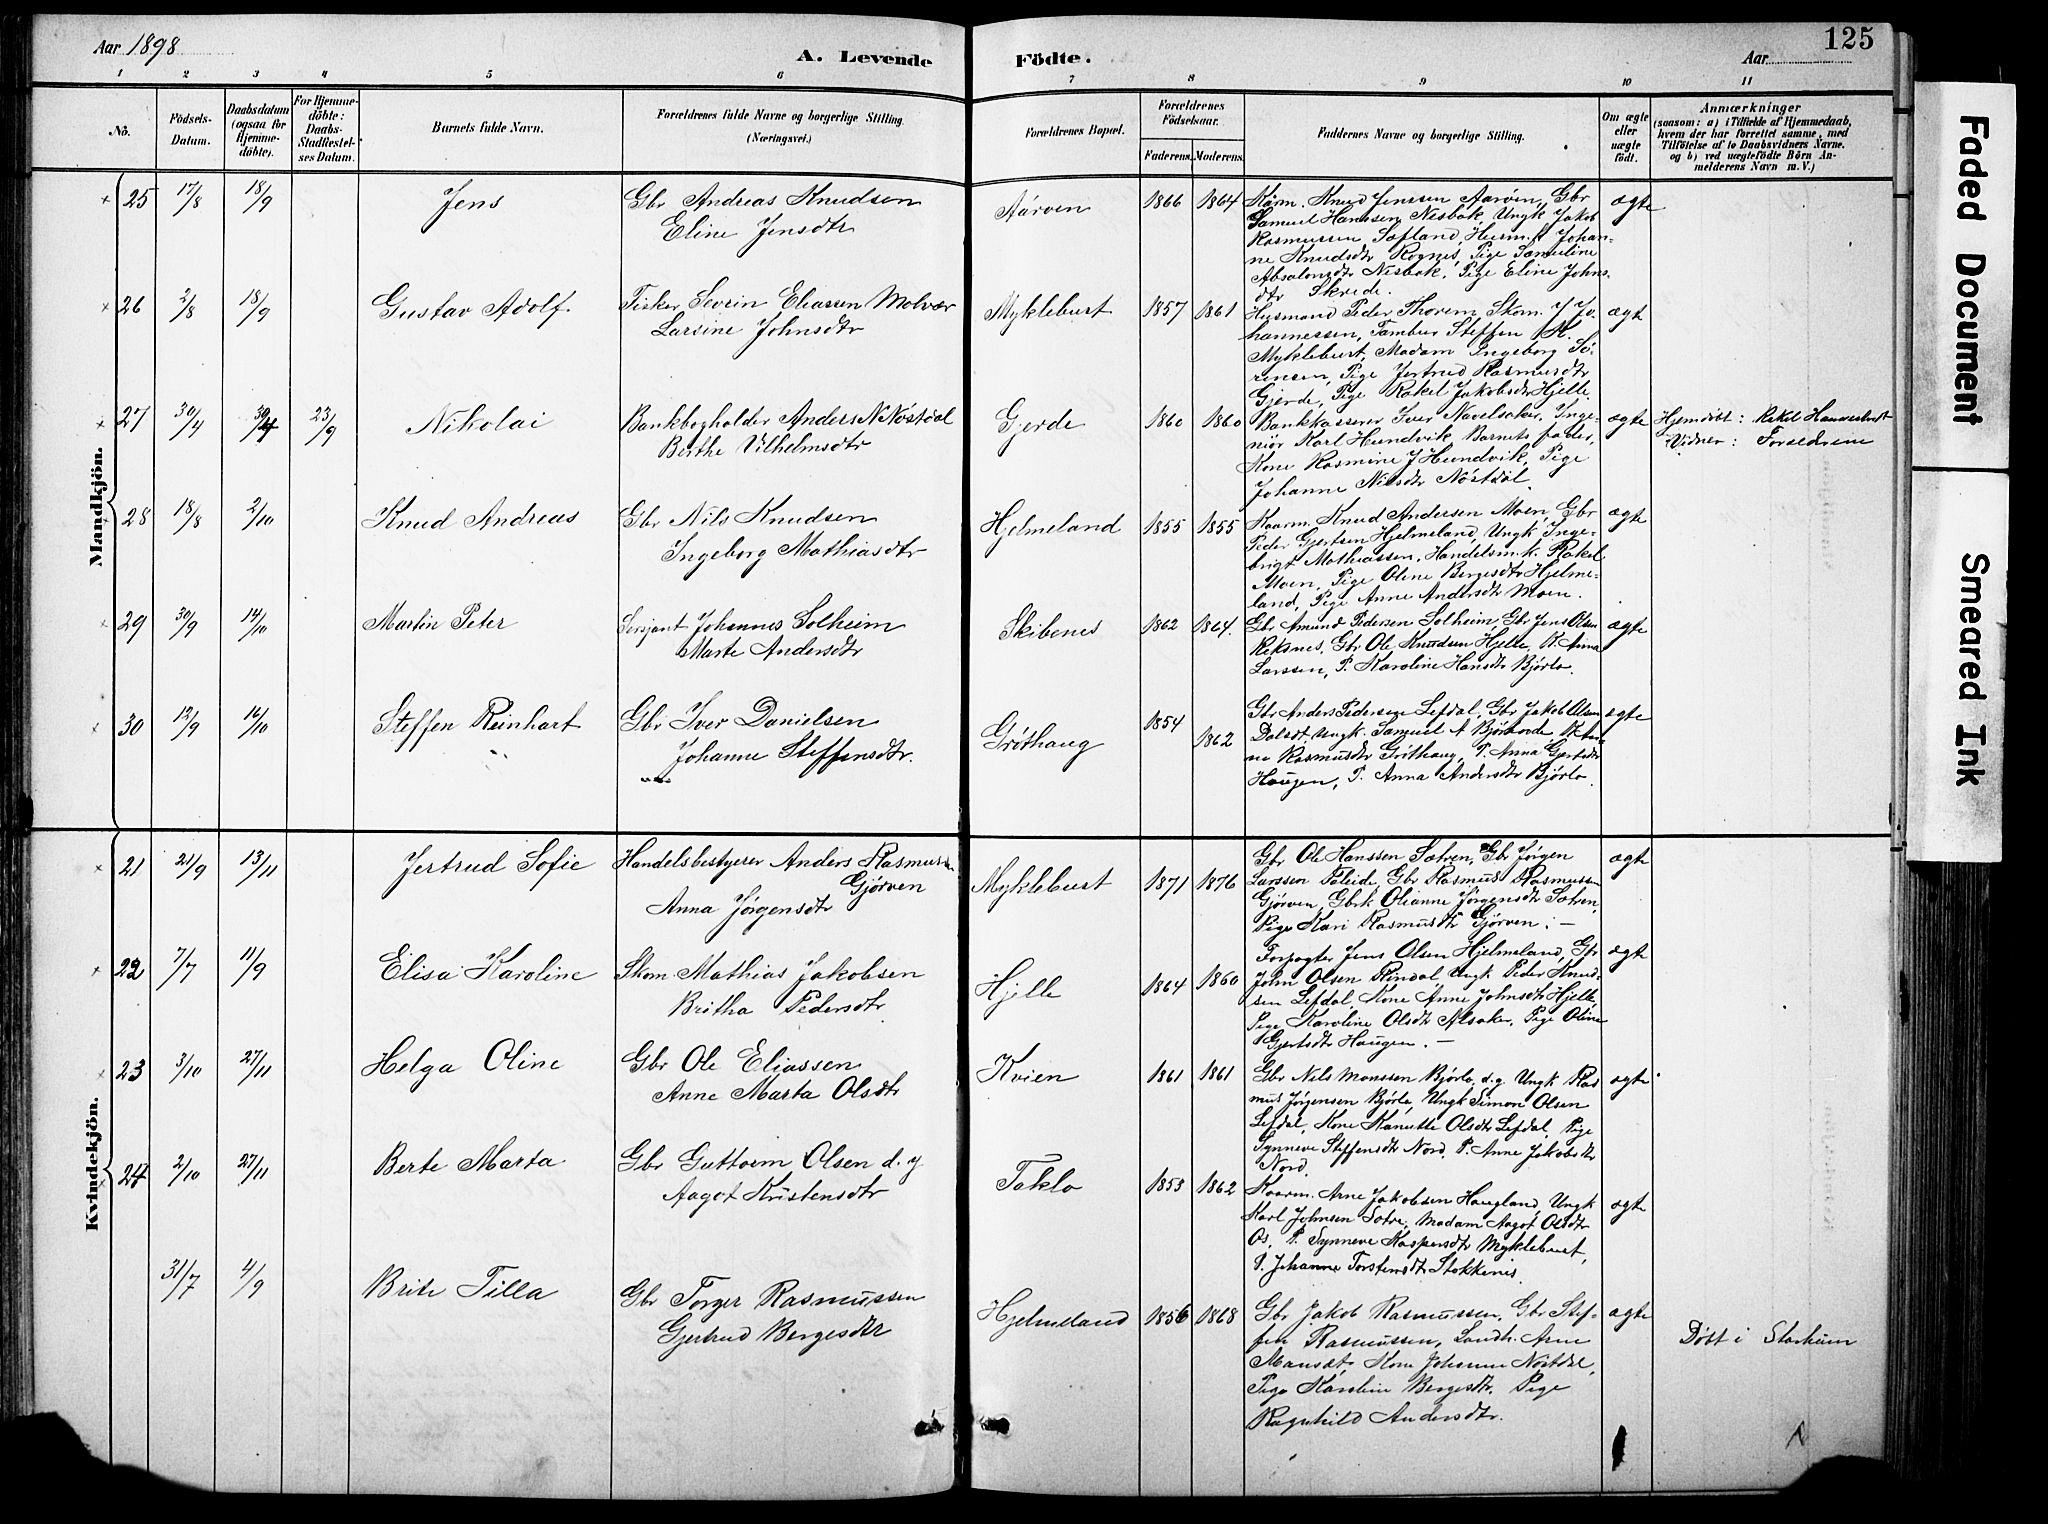 Aar 1898
A. Levende
Födte.
Aar
125
1 2 3 4 5 6 7 8 9 10 11
No.
Födsels-
Datum.
Daabsdatum
(ogsaa for
Hjemme-
döbte).
For Hjemme-
döbte:
Daabs-
Stadfæstel-
ses Datum.
Barnets fulde Navn.
Forældrenes fulde Navne og borgerlige Stilling.
(Næringsvei.)
Forældrenes Bopæl.
Forældrenes
Födselsaar.
Faderens. Moderens.
Faddernes Navne og borgerlige Stilling.
Om ægte
eller
uægte
født.
Anmærkninger
(saasom: a) i Tilfælde af Hjemmedaab,
hvem der har forrettet samme, med
Tilföielse af to Daabsvidners Navne.
og b) ved uægtefödte Börn An-
melderens Navn m. V.)
Mandkjön.
25 17/8 18/9 Jens
Gbr Andreas Knudsen
Eline Jensdtr
Aarven 1866 1864
Kårm. Knud Jenssen Aarven, Gbr
Samuel Hanssen Nesbak, Ungk Jakob
Rasmussen Sæfland, Husm.k Johan-
ne Knudsdtr Rognes, Pige Samueline
Absalonsdtr Nesbak, Pige Eline Johns-
dtr Skrede.
ægte
26 2/8 18/9 Gustav Adolf
Fisker Severin Eliassen Molvær
Larsine Johnsdtr
Myklebust 1857 1861
Husmand Peder Thorem, Skom. J Jo-
hannessen, Tambur Steffen M.
Myklebust, Madam Ingeborg Sø-
rensen, Pige Jertrud Rasmusdtr
Gjerde, Pige Rakel Jakobsdtr Hjelle.
ægte
27 30/4 30/4 23/9 Nikolai
Bankbogholder Anders N Nöstdal
Berthe Vilhelmsdtr
Gjerde 1860 1860
Bankkasserer Iver Navelsaker, Inge-
niør Karl Hundvik, Barnets fader,
Kone Rasmine J Hundvik, Pige
Johanne Nilsdtr Nöstdal.
ægte
Hjemdöbt: Rakel
Vidner: Forældrene
28 18/8 2/10 Knud Andreas
Gbr Nils Knudsen
Ingeborg Mathiasdtr
Hjelmeland 1855 1855
Kaarm. Knud Andersen Moen, Gbr
Peder Gjertsen Hjelmeland, Ungk Inge-
brigt Mathiassen, Handelsm.k. Rakel
Moen, Pige Oline Bergesdtr Hjelme-
land, Pige Anne Andersdtr Moen.
ægte
29 30/9 14/10 Martin Peter
Sersjant Johannes Solheim
Marte Andersdtr
Skibenes 1862 1864.
Gbr Amund Pedersen Solheim, Gbr Jens Olsen
Reksnes, Gbr Ole Knudsen Hjelle, K Anna
Larssen, P. Karoline Hansdtr Björlo.
ægte
30 12/9 16/10 Steffen Reinhart
Gbr Iver Danielsen
Johanne Steffensdtr.
Gröthaug 1854 1862
Gbr Anders Pedersen Lefdal, Gbr Jakob Olsen
Dalsdt, Ungk. Samuel A Björhovde, K An-
ne Rasmusdtr Gröthaug, P. Anna Gjertsdtr
Haugen, P. Anna Andersdtr Björlo.
ægte
Kvindekjön.
21 21/9 13/11 Jertrud Sofie
Handelsbestyrer Anders Rasmussen
Gjörven
Anna Jörgensdtr
Myklebust 1871 1876
Gbr Ole Hanssen Sætren, Gbr Jörgen
Larssen Faleide, Gbr Rasmus Rasmussen
Gjörven, Gbrk Olianne Jörgensdtr Sætren,
Pige Kari Rasmusdtr Gjörven. —
ægte
22 7/7 11/9 Elisa Karoline
Skom. Mathias Jakobsen
Britha Pedersdtr
Hjelle 1864 1860
Forpagter Jens Olsen Hjelmeland, Gbr
John Olsen Rindal, Ungk Peder Knud-
sen Lefdal, Kone Anne Johnsdtr Hjelle,
Pige Karoline Olsdtr Alsaker, Pige Oline
Gjertsdtr Haugen. —
ægte
23 3/10 27/11 Helga Oline
Gbr Ole Eliassen
Anne Marta Olsdtr
Kvien 1861 1861
Gbr Nils Monssen Björlo, d.y. Ungk Ras-
mus Jörgensen Björlo, Ungk Simon Olsen
Lefdal, Kone Kanutte Olsdtr Lefdal, Pige
Synneve Steffensdtr Nord, P. Anne Jakobsdtr
Nord.
ægte
24 2/10 27/11 Berte Marta
Gbr Guttorm Olsen d. y
Aagot Kristensdtr
Taklo 1853 1862
Kaarm. Arne Jakobsen Haugland, Ungk
Karl Johnsen Sætre, Madam Aagot Olsdtr
Os, P. Synneve Kaspersdtr Myklebust,
P. Johanne Torstensdtr Stokkenes.
ægte
31/7 4/9 Brite Tilla
Gbr Torger Rasmussen
Gjertrud Bergesdtr
Hjelmeland 1856 1868
Gbr Jakob Rasmussen, Gbr Stef-
fen Rasmussen, Landh. Arne
Mansæt, Kone Johanne Nöstdal,
Pige Karoline Bergesdtr, Pige
Ragnhild Andersdtr.
ægte
Döbt i Starheim
Faded Document
Smeared Ink